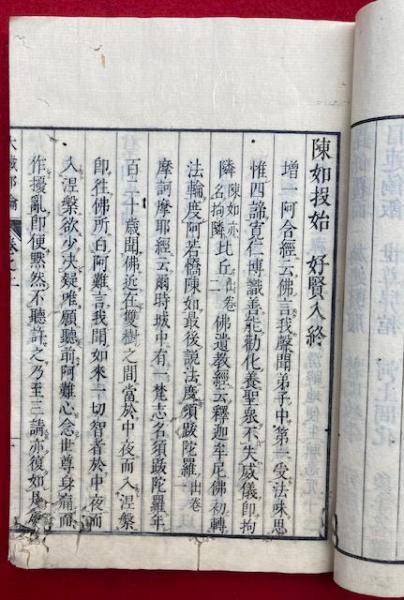 陳如投始　好賢入終
增一阿含經云佛言我聲聞弟子中第一受法味思
惟四諦寬仁博識善能勸化養聖衆不失威儀即拘
隣陳如亦名拘隣比丘出卷二　佛遺教經云釋迦牟尼佛初轉
法輪度阿若憍陳如最後説法度須跋陀羅出卷
摩訶摩耶經云爾時城中有一梵志名須跋陀羅年
百二十歲聞佛近在雙樹之間當於中夜而入涅槃
即往佛所白阿難言我聞如來一切智者於中夜而
入涅槃欲少決疑唯願聽前阿難心念世尊身痛而
作擾亂即便默然不聽許之乃至三請亦復如是